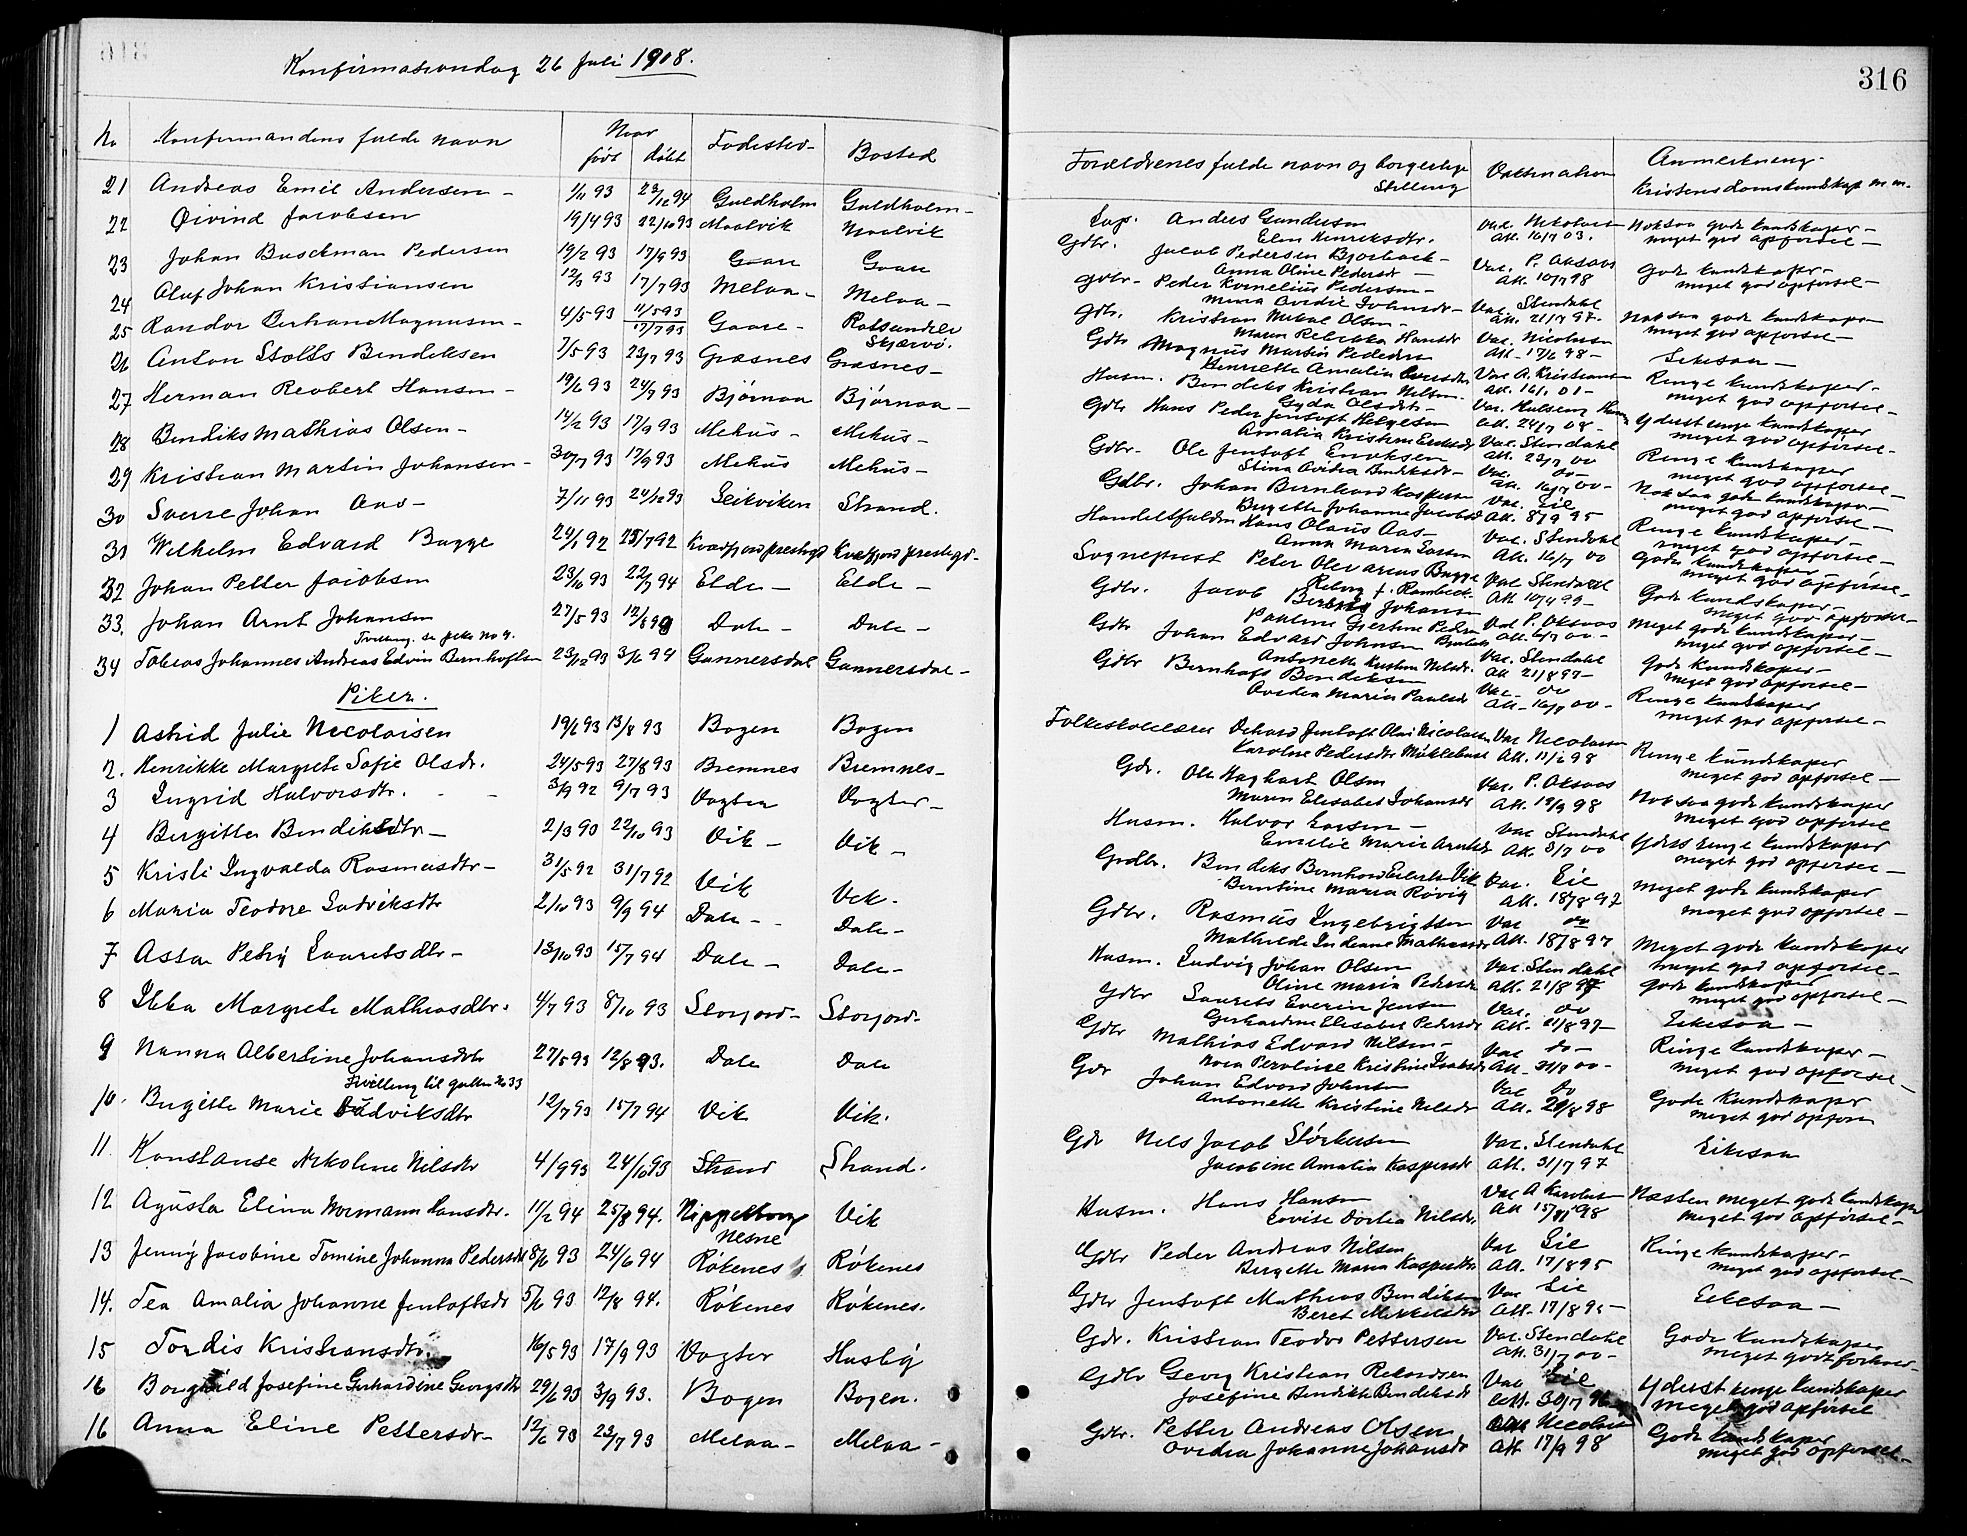 Konfirmationsdag 26 Juli 1908.
No Konfirmandens fulde navn Naar født døbt Fødested Bosted
21 Andreas Emil Andersen – 1/11 93 23/12 94 Guldholm Guldholm –
22 Øivind Jacobsen 19/4 93 22/10 93 Maalvik Maalvik
23 Johan Buschman Pedersen 19/2 93 17/9 93 Gaare Gaare
24 Oluf Johan Kristiansen 12/3 93 17/7 93 Melaa – Melaa –
25 Randor Magnusen – 4/5 93 11/5 93 17/7 93 Gaare – Rotsundelv Skjærvø.
26 Anton Stolts Bendiksen 7/5 93 23/7 93 Græsnes Græsnes –
27 Herman Reobert Hansen – 19/6 93 24/9 93 Bjørnaa Bjørnaa –
28 Bendiks Mathias Olsen – 14/2 93 17/9 93 Mehus – Mehus –
29 Kristian Martin Johansen – 30/7 93 17/9 93 Mehus Mehus –
30 Sverre Johan Aas – 7/11 93 24/12 93 Leikviken Strand.
31 Wilhelm Edvard Bugge 24/1 92 25/7 92 Kvædfjord prestegd Kvæfjord prestegd. –
32 Johan Petter Jacobsen 23/10 93 22/7 94 Elde – Elde –
33. Johan Arnt Johansen 27/5 93 12/8 93 Dale – Dale –
Tvilling. se pike No 9.
34 Tobias Johannes Andreas Edvin Bernhoftsen 23/12 93 3/6 94 Gunnersdal Gunnersdal –
Piker.
1 Astrid Julie Nicolaisen 19/6 93 13/8 93 Bogen Bogen
2. Henrikke Margrete Sofie Olsdr. 24/5 93 27/8 93 Bremnes Bremnes –
3 Ingrid Halvorsdtr. 3/9 92 9/7 93 Vogter Vogter –
4 Bergitte Bendiksdtr – 2/3 93 22/10 93 Vik – Vik –
5 Kristi Ingvalda Rasmusdtr – 31/5 92 31/7 92 Vik Vik –
6 Maria Teodore Ludviksdtr 2/10 93 9/9 94 Dale – Dale –
7 Asta Petry Lauretsdtr – 13/10 93 15/7 94 Dale – Dale –
8 Ebba Margrete Mathiasdtr. 4/7 93 8/10 93 Storjord – Storjord –
9 Nanna Albertine Johansdtr 27/5 93 12/8 93. Dale Dale
Tvilling til gutten No 33
10. Birgitte Marie Ludviksdtr 12/7 93 15/7 94 Vik Vik.
11 Konstanse Nikoline Nilsdtr 4/9 93 24/10 93 Strand Strand.
12 Agusta Elina Normann Hansdtr. 11/2 94 25/8 94. Nesne Vik
13 Jenny Jacobine Tomine Johanna Pedersdtr 8/6 93 24/6 94 Røkenes Røkenes
14. Tea Amalia Johanne Jentoftsdr 5/6 93 12/8 94. Røkenes Røkenes.
15 Tordis Kristiansdtr. 16/5 93 17/9 93 Vogter Husby
16 Borghild Josefine Gerhardine Georgsdtr 29/6 93 3/9 93. Bogen Bogen.
16 Anna Eline Pettersdr – 12/6 93 23/7 93 Melaa – Melaa –
316
Forældrenes fulde navn og borgerlige Stilling Vaksination Anmerkning. Kristendomskundskap m m.
Anders Gundersen Vac. Nikolaisen Noksaa gode kundskaper –
Elen Henriksdtr. Att. 16/7 03. meget god opførsel –
Gdbr. Jacob Pedersen Bjørbæck – Vac. P. Aksaas Gode kundskaper –
Anna Oline Pedersdr – Att. 10/7 98 meget god opførsel –
Gdbr – Peder Kornelius Pedersen – Vac. Stendahl Noksaa gode kundskaper
Mina Ovedie Johansdr – Att. 21/7 97. meget god opførsel –
Gdb. Kristian Mikal Olsen – Vac. Nicolaisen Likesaa –
Maren Rebekka Hansdr Att – 17/6 98 –
Gdb Magnus Martin Pedersen Vac A. Kristiansen Ringe kundskaper –
Henriette Amalia Att. 16/1 01 – meget god opførsel –
Husm. Bendiks Kristian Nilsen Vac. Yderst ringe kundskaper
Gyda Olsdtr – Att. 24/7 08 – meget god opførsel –
Gdb Hans Peder Jentoft Helgesen Vac. Stendahl Ringe kundskaper
Amalia Kristine Att. 23/7 00 meget god opførsel –
Gdbr. Ole Jentoft Enoksen Vac. do – Noksaa gode kundskaper –
Stina Ovidia Bendiksdr – Att. 16/7 00 – meget god opførsel –
Gdbr. Johan Bernhard Kaspersen Vac. Lie Ringe kundskaper –
Birgitte Johanne Jacobsd Att. 8/9 95 meget god opførsel –
Handelsfuldm Hans Olaus Aas – Vac. Stendahl Gode kundskaper
Anna Maria Larsen Att. 16/7 00 meget god opførsel –
Sogneprest Peter Olevarius Bugge Vac Stendahl Gode kundskaper –
f. Rambeck Att 10/4 99 – meget god opførsel –
Gdbr. Jacob Johansen Vac P. Oksaas Meget gode kundskaper –
Pauline Gjertine Att. 6/7 00 – meget god opførsel –
Gdbr Johan Edvard Johnsen Vac. Stendahl Gode kundskaper –
Antonette Kristine Nilsdr. Att 21/8 97 – meget god opførsel –
Gdbr Bernhoft Bendiksen Vac – do Ringe kundskaper
Ovedia Maria Paulsdr Att – 16/7 00 – meget god opførsel –
Folkeskolelærer Jentoft Olai Nicolaisen Vac Nicolaisen Ringe kundskaper
Karoline Pedersdtr Møklebust Att. 11/6 98 meget god opførsel –
Gdr. Ole Haghart Olsen Vac. P. Oksaas Noksaa gode kundskaper
Maren Elisabet Johansdr Att. 19/9 98 meget god opførsel –
Husm. Halvor Larsen – Vac Stendahl Yderst ringe kundskaper
Emelie Marie Att. 3/7 00 meget god opførsel –
Grdbr. Bendiks Bernhard Vik Vac. Lie Meget gode kundskaper
Berntine Maria Røvig Att. 18/8 97 meget god opførsel –
Gdbr. Rasmus Ingebrigtsen Vac do Meget gode kundskaper
Mathilde Indiane Att. 18/8 97 meget god opførsel –
Husm. Ludvig Johan Olsen Vac. Stendahl Gode kundskaper
Oline Maria Pedersdr Att. 21/8 97 meget god opførsel –
Gdbr Laurets Everin Jensen Vac. do Likesaa –
Gerhardine Elisabet Pedersdr Att. 21/8 97 –
Gdbr Mathias Edvard Nilsen – Vac do – Ringe kundskaper –
Nora Peroline Kristine Att. 31/7 00 – meget god opførsel –
Gdr Johan Edvard Johnsen Vac do Gode kundskaper
Antonette Kristine Nilsdr Att. 21/8 98 meget god opførs
Gdr Nils Jacob Størkersen Vac. Stendahl Likesaa
Jacobine Amalia Kaspersdr Att. 31/7 97
Husm. Hans Hansen Vac A Næsten meget gode kundskaper
Lovise Dortea Nilsdr. Att 15/8 98 meget god opførsel –
Gdbr Peder Andreas Nilsen Vac Lie Ringe kundskaper –
Bergitte Maria Kaspersdtr Att. 17/8 95 meget god opførsel –
Gdbr Jentoft Mathias Bendiksen Vac Lie Likesaa –
Beret Mikkelsdtr Att – 17/8 95 –
Gdr. Kristian Teodor Pettersen Vac. Stendahl Gode kundskaper
Att. 31/7 00 – meget godt forhold –
Gdbr Georg Kristian Rekardsen Vac Lie Yderst ringe kundskaper
Josefine Bendikte Bendiksdr Att. 30/7 96 meget god opførsel
Gdbr. Petter Andreas Olsen Vac Nicolaisen Gode kundskaper
Ovedia Johanne Johansdr Att. 17/9 98 meget god opførsel –